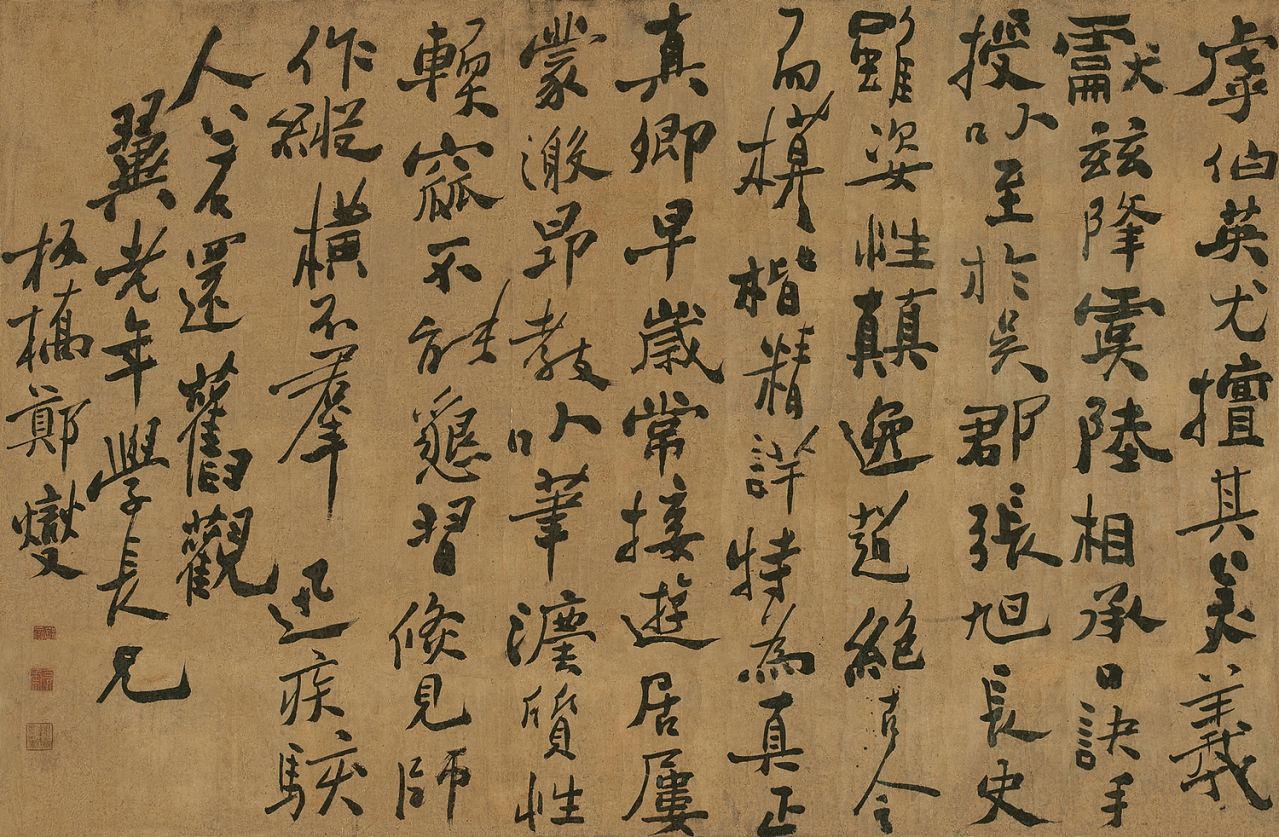 虖伯英尤擅其美羲
獻茲降虞陸相承口訣手
授以至於吳郡張旭長史
雖姿性顛逸超絕古今
而模楷精詳特為真正
真卿早歲常接遊居屢
蒙激昂教以筆灋質性
輭窳不能懇習倐見師
作縱橫不羣迅疾駭
人若還舊觀
翼老年學長兄
板橋鄭燮